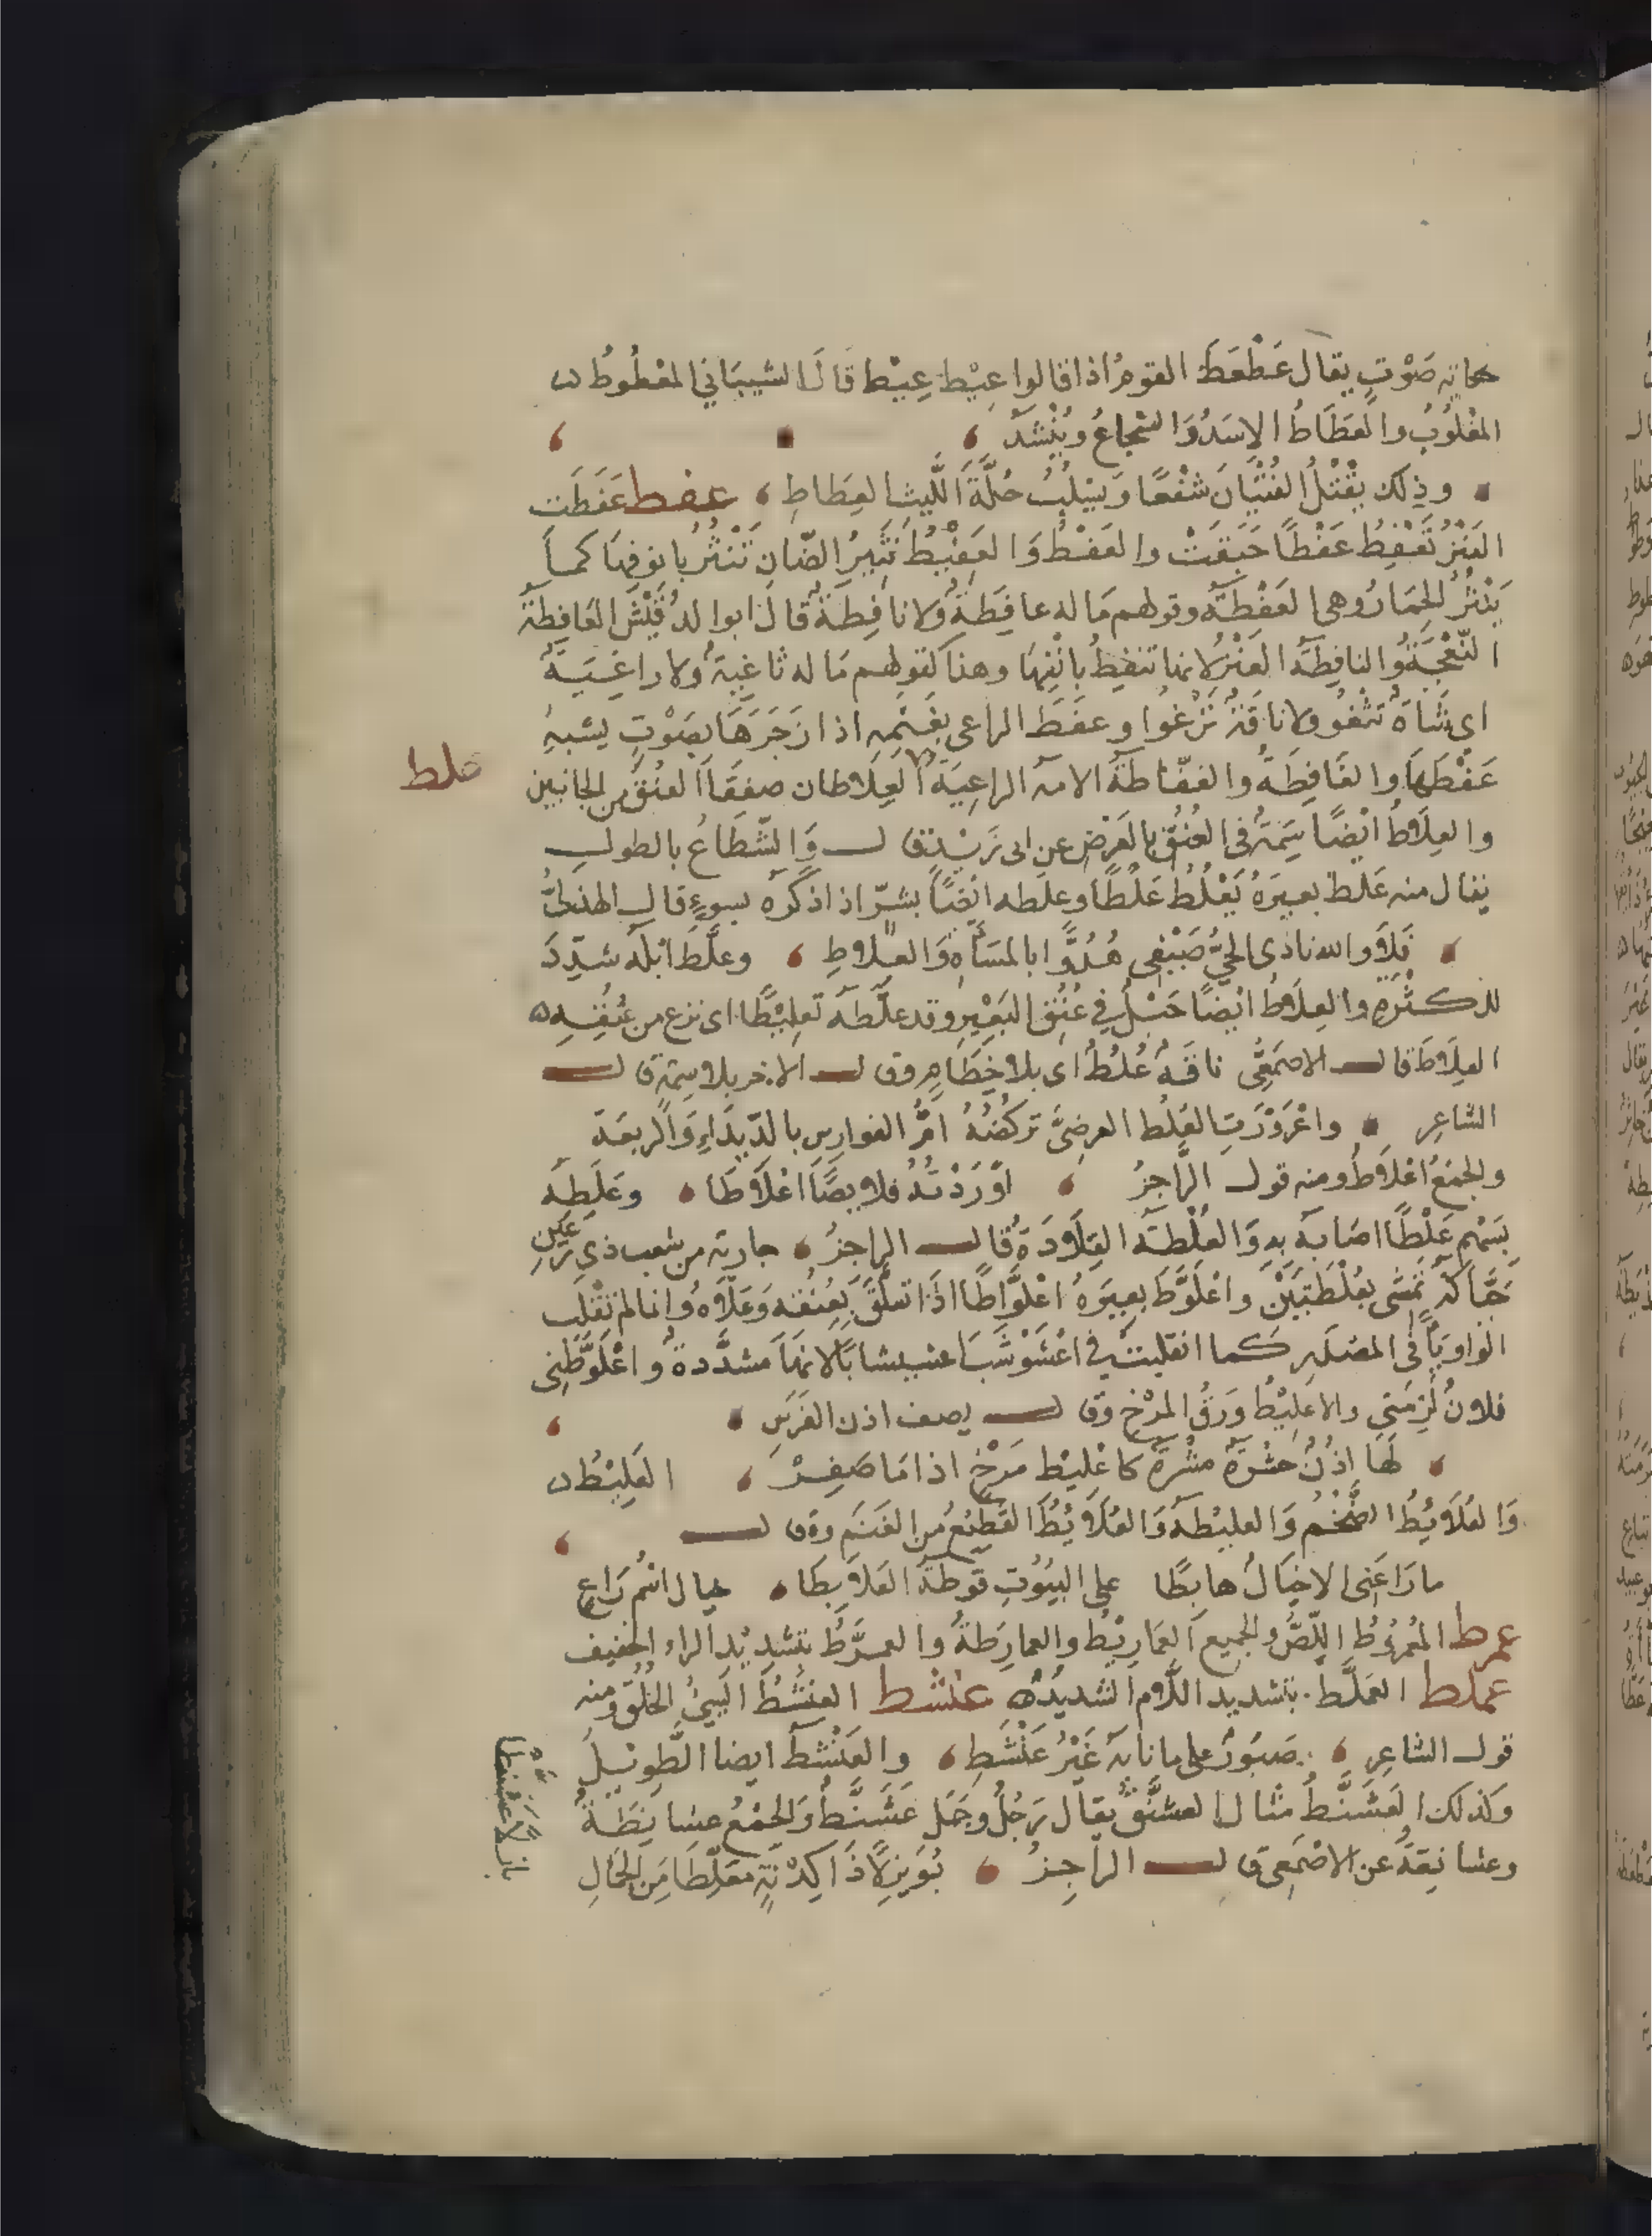 حكاية صَوْتٍ يقال عَطْعَطَ القومُ اذا قالوا عِيْط عِيْط قالَ الشيبَاني المعْطُوطُ
المغْلُوبُ والعَطَاطُ الاسَدُ وَالشجاعُ ويُنْشدُ
وذلك يقْتُلُ الفُتْيَانَ شفْعًا وَيسْلُبُ حُلَّةَ اللَّيث العِطَاطِ عفط عَفَطَت
العَنْزُ تَعْفِطُ عَفْطًا حَبَقَتْ والعَفْطُ وَالعَفِيْطُ نَثِيرُ الضّانِ تَنْثُرُ بانوفِهَا كمَا
يَنْثُرُ الحِمَارُ وهى العَفْطَةُ وقولهم مَا له عافِطَةٌ وَلا نافِطَةٌ قالَ ابوالدُّقَيْش العَافِطةُ
النَّعْجَةُ والنافِطَةُ العَنْزُ لانها تنفِطُ بانْفِهَا وهذا كقولهم مَا له ثاغِيةٌ ولا راغِيَةٌ
اى شاةٌ تثغُو ولا ناقةٌ تَرْغُوا وعفَطَ الراعى بغَنَمِهِ اذا زَجَرَهَا بصَوْتٍ يشبهُ
عَفْطَهَا والعَافِطَةُ والعَفّاطَةُ الامة الراعِيَةُ العِلاطان صفقَا العُنُقِ من الجانبين
علط
والعِلَاطُ ايْضًا سِمَةٌ فى العُنُقِ بالعَرْضِ عن ابى زَيْدٍ قال وَالسِّطَاعُ بالطول
يقال منه عَلَط بعيرَهُ يَعْلُطُ عَلْطًا وعلَطه ايْضًا بشرّ اذا ذكَره بسوءٍ قال الهذلىُّ
فَلَا والله نادى الحيُّ ضَيْفِى هُدُوًّا بالمسَاءَةِ وَالعِلاطِ وعلَّطَ ابْلَهُ شدِّدَ
للكثْرَةِ والعِلَاطُ ايْضًا حَبْلٌ فى عُنُقِ البَعِيْرِ وقد علَّطَهُ تعلِيْطًا اى نزع من عُنُقِهِ
العِلَاطَ قال الاصمَعِىُّ ناقَةٌ عُلُطٌ اى بلا خِطَامٍ وقال الاخر بلا سِمَةٍ قال
الشاعِر واعْرَوْرَتِ العُلُط العرضىَّ تركُضُهُ امُّ الفوارِس بالدّيدَاءِ وَالربعَةِ
والجمْعُ اعْلَاطٌ ومنه قول الرَّاجزُ اوْرَدْتُهُ قلايصًا اعْلَاطَا وعَلَطَه
بسَهْمٍ عَلْطًا اصَابَه بهِ وَالعُلْطَة القِلَادَةُ قال الراجزُ جارية من شعب ذى رُعَيْنِ
حَيَّاكَةٌ تمْشى بعُلْطَتَيْنِ واعْلَوَّطَ بعيرَهُ اعْلِوَّاطًا اذَا تعلَّقَ بِعُنُقه وَعَلَاهُ وانما لم تنْقَلِب
الواو يَاءً فى المصْدَرِ كما انقلبتْ فى اعْشَوْشَبَ اعشيشابًا لانهَا مشدَّدةٌ واعْلَوَّطَنِى
فلانٌ لَزِمَنِى والاعلِيْطُ وَرَقُ المرْخِ وقال يصف اذن الفَرَسِ
لَهَا اذُنٌ حَشْرَةٌ مشْرَةٌ كاعْلِيْط مَرْخٍ اذا مَا صَفِرْ العُلَبِطُ
وَالعُلَابِطُ الضَّخْمُ وَالعلبطة وَالعُلَابِطُ القَطِيْعُ مِنَ الغَنَم وقال
ما رَاعَنِى الا خَيَالٌ هابطَا على البيُوْتِ قوطَهُ العُلَابِطَا خيال اسْم رَاعٍ
عمرط العُمْرُوطُ اللِّصُّ والجميع العَمَارِيْطُ والعمارِطَةُ والعمرَّطُ بتشديْد الراء الخفيف
عملط العَمَلَّط بتشديد اللَّام الشديدُ عنشط العنْشَطُ السَّيئُ الخُلُقِ ومنه
قول الشاعِر صَبُوْرٌ على ما نابه غَيْرُ عَنْشَطِ والعَنْشَطُ ايضا الطَّوِيْلُ
وَكذلك العَشَنَّطُ مثال العشَنَّقُ يقال رَجُلٌ وجَمَل عَشَنَّطٌ وَالجمْعُ عشانِطَةٌ
وعشانِقةٌ عن الاصْمَعِى قال الراجِزُ بُوَيزِلًا ذَا كِدْنَةٍ معَلّطَا مِنَ الجمَالِ
بازلًا عَشَنَّطَا